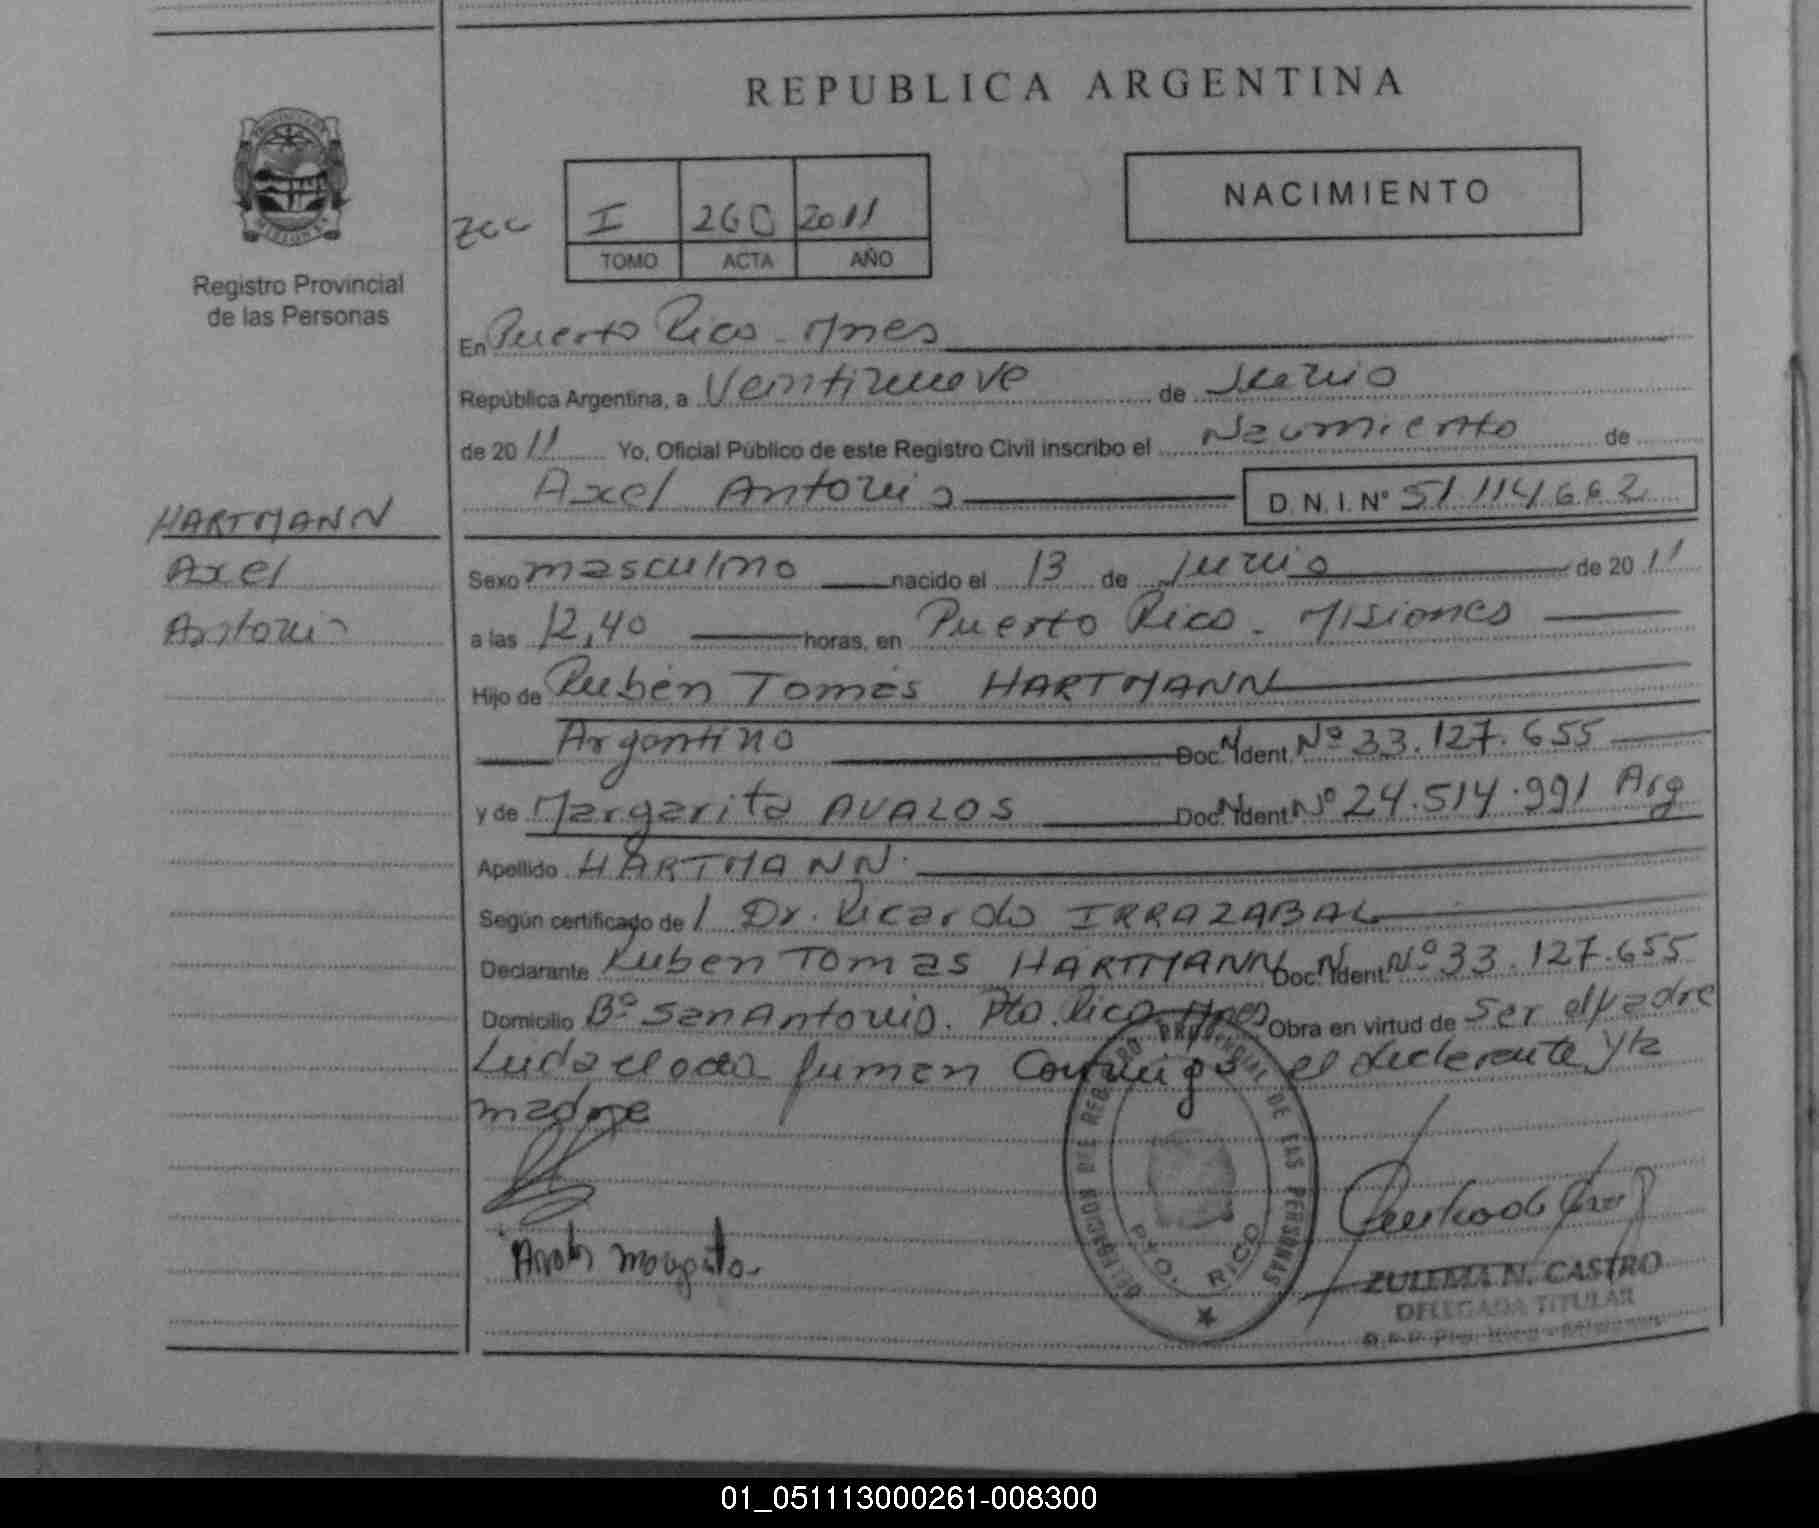 REPUBLICA ARGENTINA
PROVINCIA DE
MISIONES
Registro Provincial
de las Personas
NACIMIENTO
I 260 2011
TOMO ACTA AÑO
En Puerto Rico - Mnes
República Argentina, a Veintinueve de Junio
de 2011 Yo, Oficial Público de este Registro Civil inscribo el Nacimiento de
Axel Antonio D. N. I. Nº 51.114.662
HARTMANN
Axel
Antonio
Sexo masculino nacido el 13 de Junio de 2011
a las 12,40 horas, en Puerto Rico - Misiones
Hijo de Rubén Tomás HARTMANN
Argentino Doc. N. Ident. Nº 33.127.655
y de Margarita AVALOS Doc. N. Ident Nº 24.514.991 Arg
Apellido HARTMANN
Según certificado de / Dr. Ricardo IRRAZABAL
Declarante Ruben Tomas HARTMANN Doc. N. Ident. Nº 33.127.655
Domicilio Bº San Antonio. Pto. Rico Mnes Obra en virtud de ser el padre
Leida el acta firman conmigo el declarante y la
madre
Avalos Margarita
DELEGACION DEL REGISTRO PROVINCIAL DE LAS PERSONAS
PTO. RICO
ZULEMA N. CASTRO
DELEGADA TITULAR
R.P.P. Pto. Rico - Misiones
01_051113000261-008300